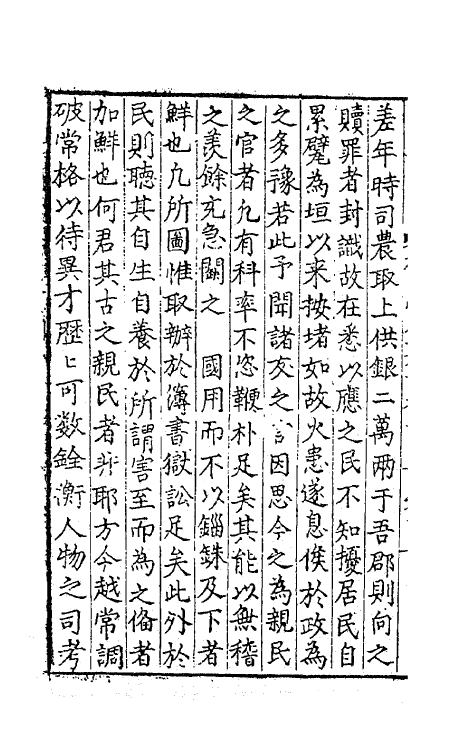 差年時司農取上供銀二萬兩于吾郡則向之
贖罪者封識故在悉以應之民不知擾居民自
累甓為垣以来按堵如故火患遂息侯於政為
之多豫若此予聞諸友之言因思今之為親民
之官者凢有科率不恣鞭朴足矣其能以無稽
之羨餘充急闕之 國用而不以錙銖及下者
鮮也凢所圖惟取辦於簿書獄訟足矣此外於
民則聽其自生自養於所謂害至而為之俻者
加鮮也何君其古之親民者非耶方今越常調
破常格以待異才歷歷可数銓衡人物之司考